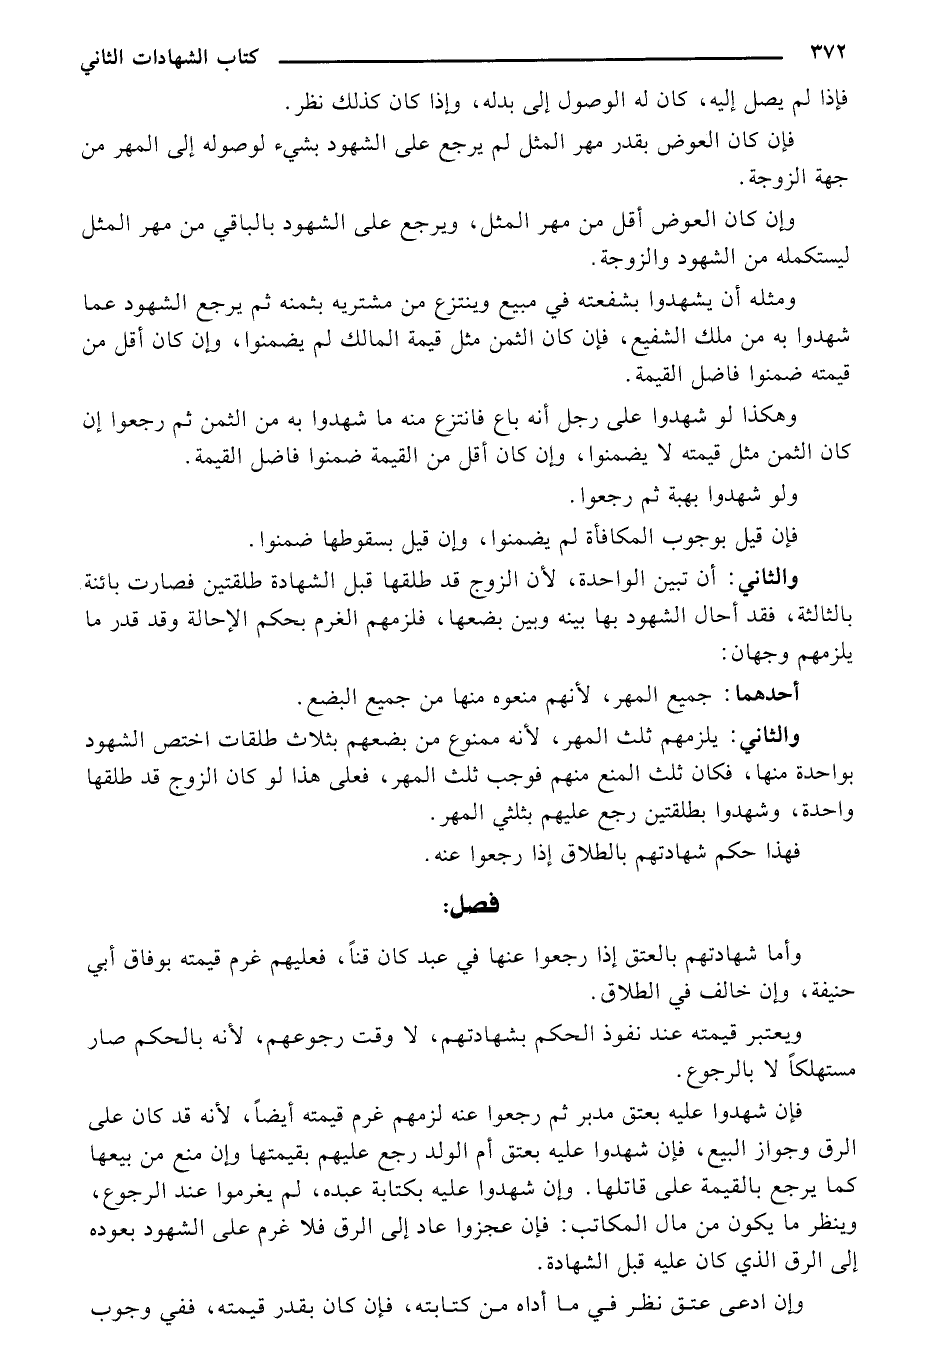 ٣٧٢ كتاب الشهادات الثاني
فإذا لم يصل إليه، كان له الوصول إلى بدله، وإذا كان كذلك نظر.
فإن كان العوض بقدر مهر المثل لم يرجع على الشهود بشيء لوصوله إلى المهر من
جهة الزوجة.
وإن كان العوض أقل من مهر المثل، ويرجع على الشهود بالباقي من مهر المثل
ليستكمله من الشهود والزوجة.
ومثله أن يشهدوا بشفعته في مبيع وينتزع من مشتريه بثمنه ثم يرجع الشهود عما
شهدوا به من ملك الشفيع، فإن كان الثمن مثل قيمة المالك لم يضمنوا، وإن كان أقل من
قيمته ضمنوا فاضل القيمة.
وهكذا لو شهدوا على رجل أنه باع فانتزع منه ما شهدوا به من الثمن ثم رجعوا إن
كان الثمن مثل قيمته لا يضمنوا، وإن كان أقل من القيمة ضمنوا فاضل القيمة.
ولو شهدوا بهبة ثم رجعوا.
فإن قيل بوجوب المكافأة لم يضمنوا، وإن قيل بسقوطها ضمنوا.
والثاني: أن تبين الواحدة، لأن الزوج قد طلقها قبل الشهادة طلقتين فصارت بائنة
بالثالثة، فقد أحال الشهود بها بينه وبين بضعها، فلزمهم الغرم بحكم الإحالة وقد قدر ما
يلزمهم وجهان:
أحدهما: جميع المهر، لأنهم منعوه منها من جميع البضع.
والثاني: يلزمهم ثلث المهر، لأنه ممنوع من بضعهم بثلاث طلقات اختص الشهود
بواحدة منها، فكان ثلث المنع منهم فوجب ثلث المهر، فعلى هذا لو كان الزوج قد طلقها
واحدة، وشهدوا بطلقتين رجع عليهم بثلثي المهر.
فهذا حكم شهادتهم بالطلاق إذا رجعوا عنه.
فصل:
وأما شهادتهم بالعتق إذا رجعوا عنها في عبد كان قناً، فعليهم غرم قيمته بوفاق أبي
حنيفة، وإن خالف في الطلاق.
ويعتبر قيمته عند نفوذ الحكم بشهادتهم، لا وقت رجوعهم، لأنه بالحكم صار
مستهلكاً لا بالرجوع.
فإن شهدوا عليه بعتق مدبر ثم رجعوا عنه لزمهم غرم قيمته أيضاً، لأنه قد كان على
الرق وجواز البيع، فإن شهدوا عليه بعتق أم الولد رجع عليهم بقيمتها وإن منع من بيعها
كما يرجع بالقيمة على قاتلها. وإن شهدوا عليه بكتابة عبده، لم يغرموا عند الرجوع،
وينظر ما يكون من مال المكاتب: فإن عجزوا عاد إلى الرق فلا غرم على الشهود بعوده
إلى الرق الذي كان عليه قبل الشهادة.
وإن ادعى عتق نظر في ما أداه من كتابته، فإن كان بقدر قيمته، ففي وجوب